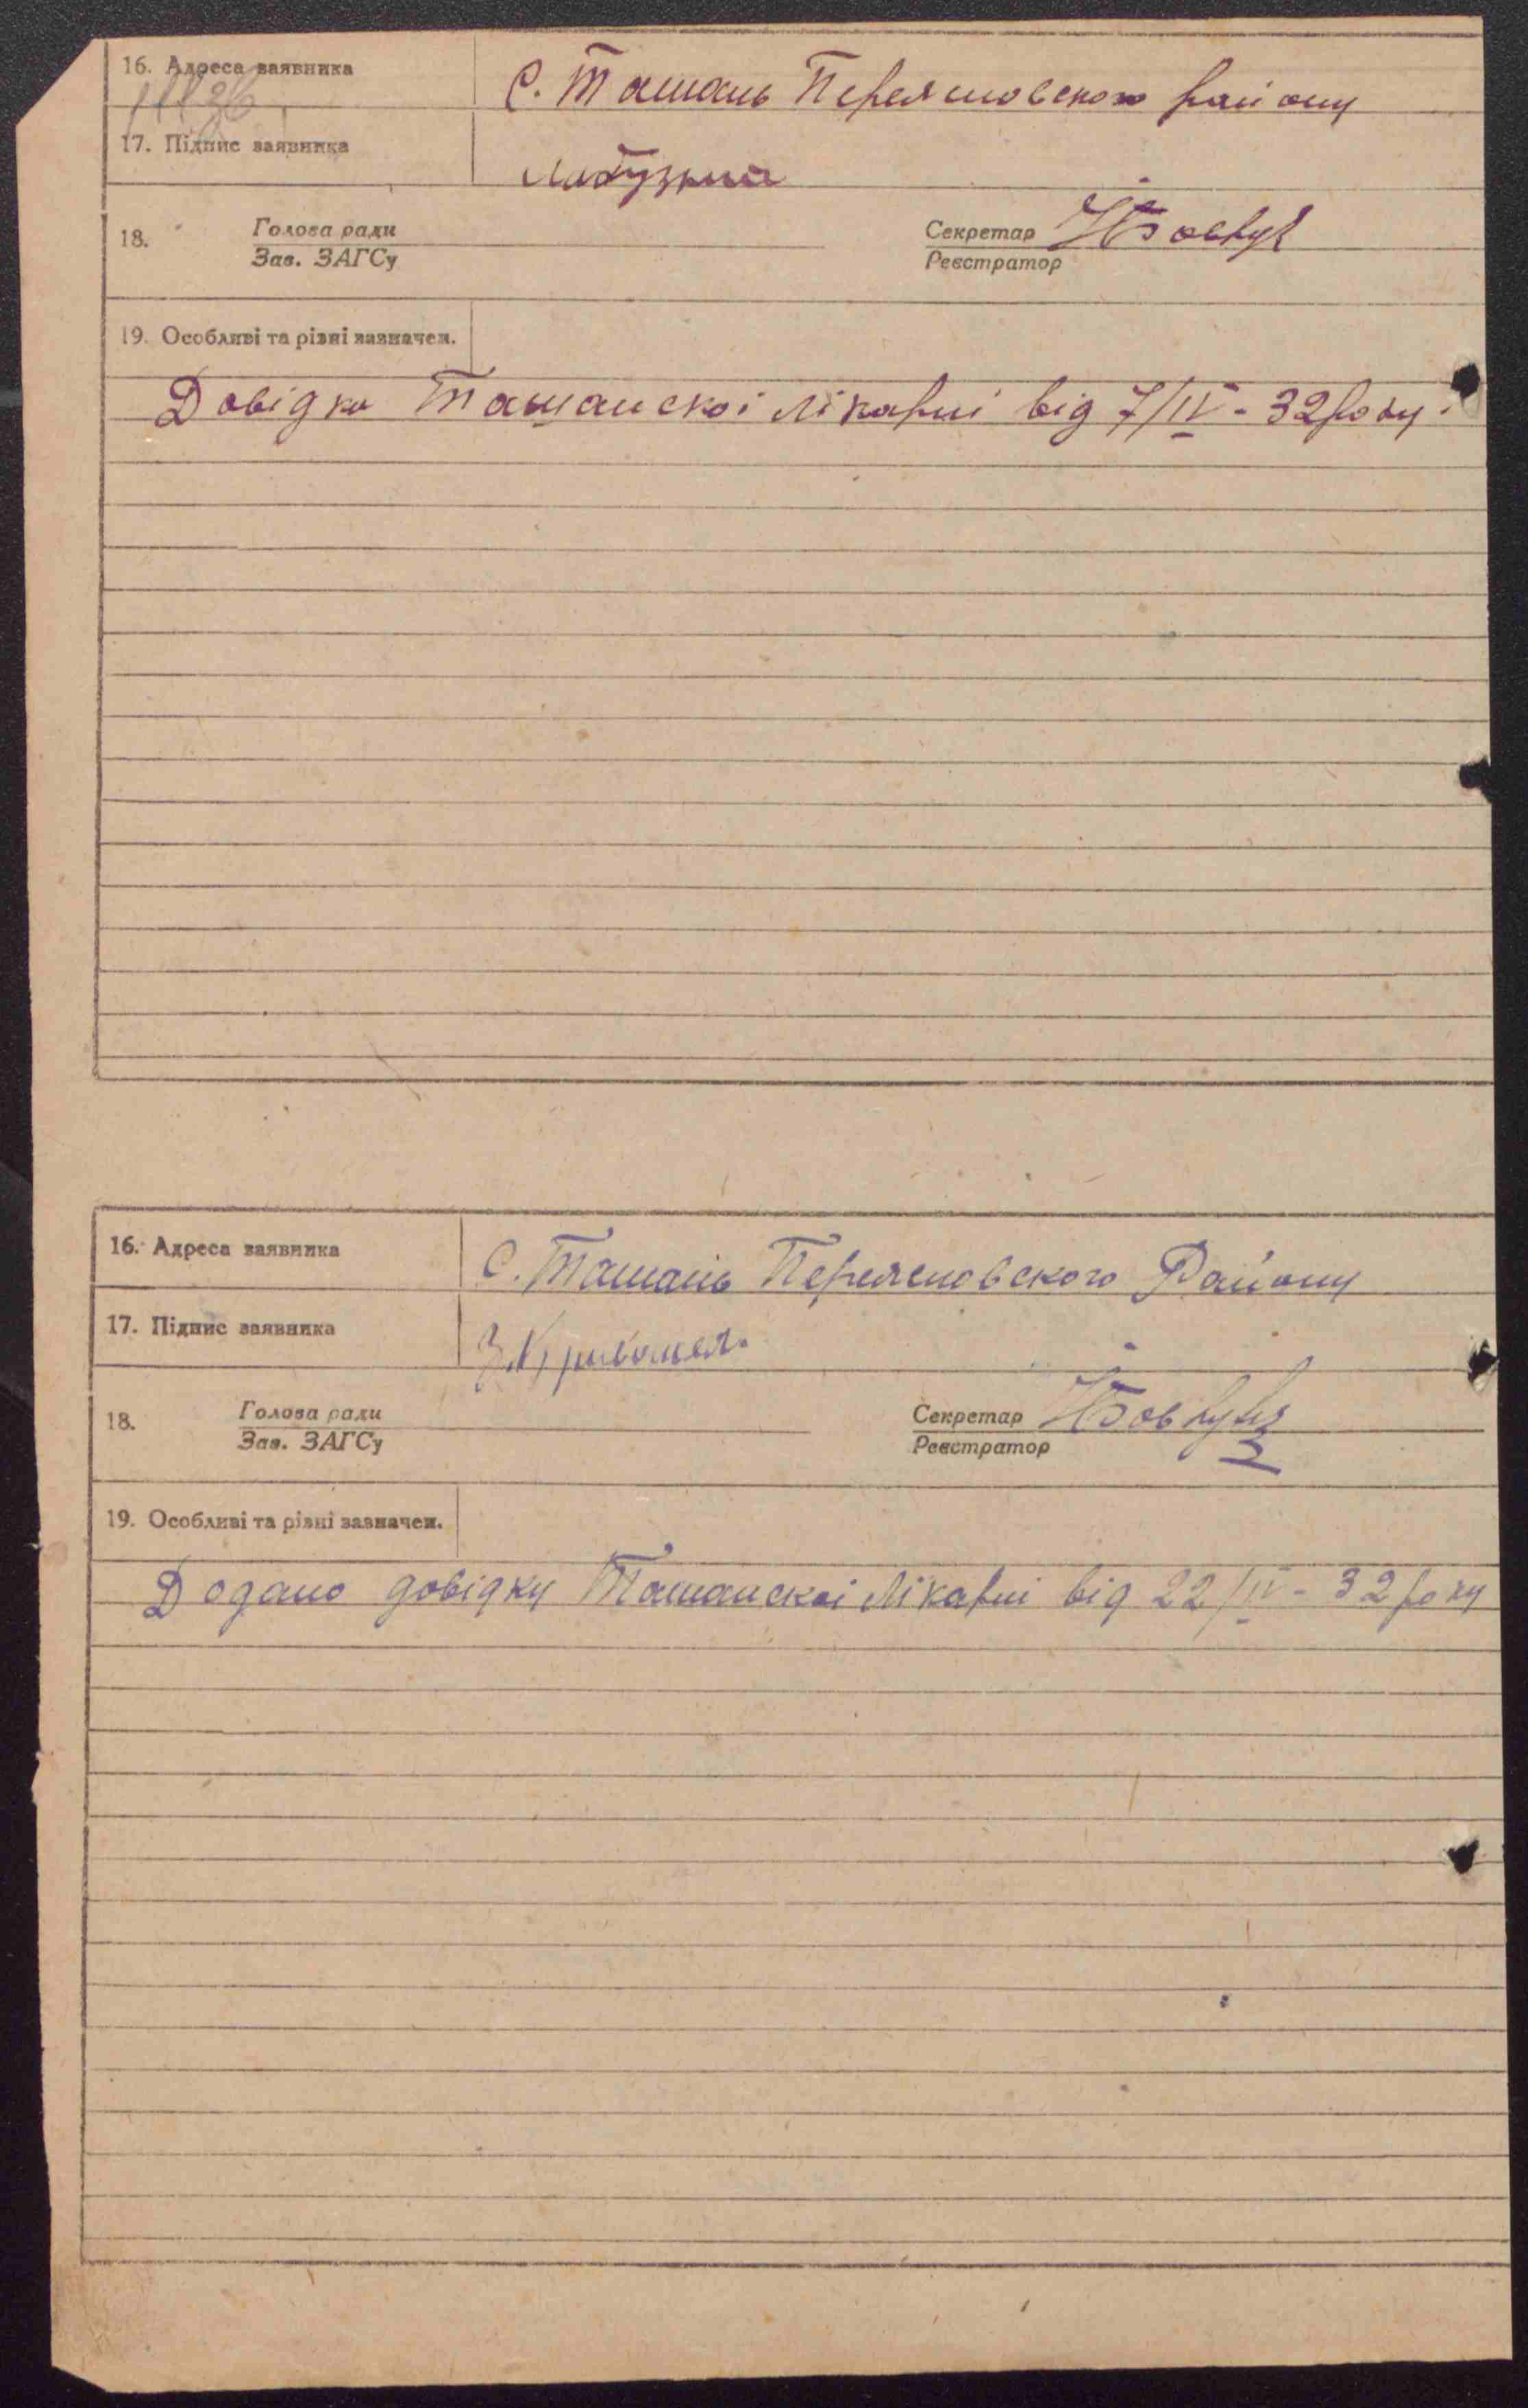 16. Адреса заявника
С. Ташань Переяславского району
17. Підпис заявника
18.
Голова ради
Зав. ЗАГСу
Секретар
Реєстратор
19. Особливі та різні зазначен.
Довідка Ташанскоі лікарні від 7/IV - 32 року.
16. Адреса заявника
С. Ташань Переяславского Району
17. Підпис заявника
18.
Голова ради
Зав. ЗАГСу
Секретар
Реєстратор
19. Особливі та різні зазначен.
Додано довідку Ташанскоі Лікарні від 22/IV - 32 року